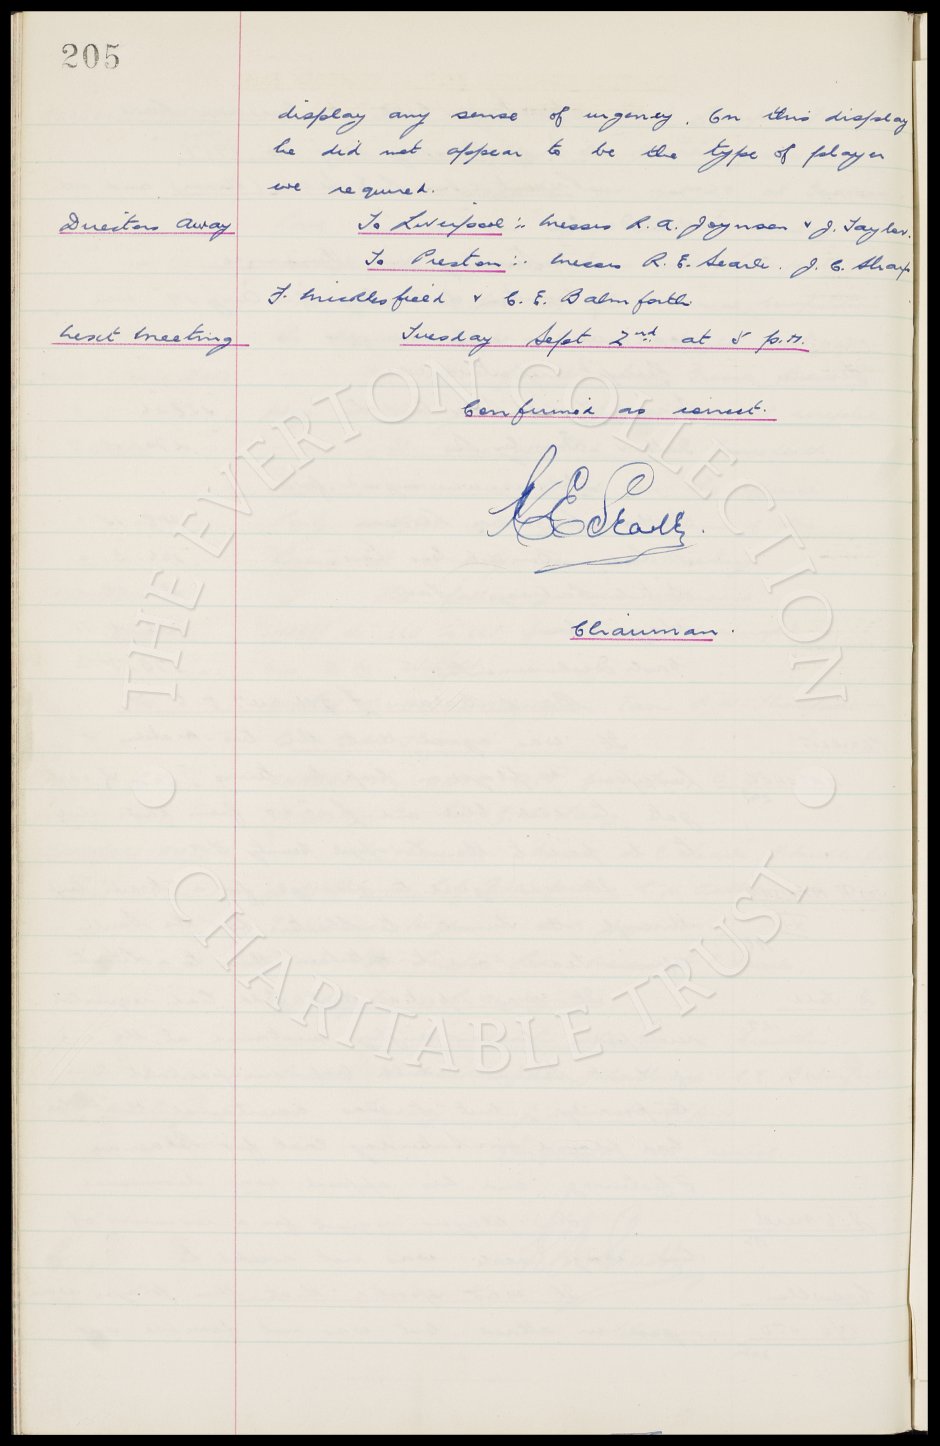 205
display any sense of urgency. On this display
he did not appear to be the type of player
we required.
Directors Away To Liverpool :- Messrs R. A. Joynson & J. Taylor.
To Preston :- Messrs R. E. Searle. J. C. Sharp
F. Micklesfield & C. E. Balmforth
Next Meeting Tuesday Sept 2nd at 5 p.m.
Confirmed as correct.
R E Searle.
Chairman.
THE EVERTON COLLECTION
CHARITABLE TRUST